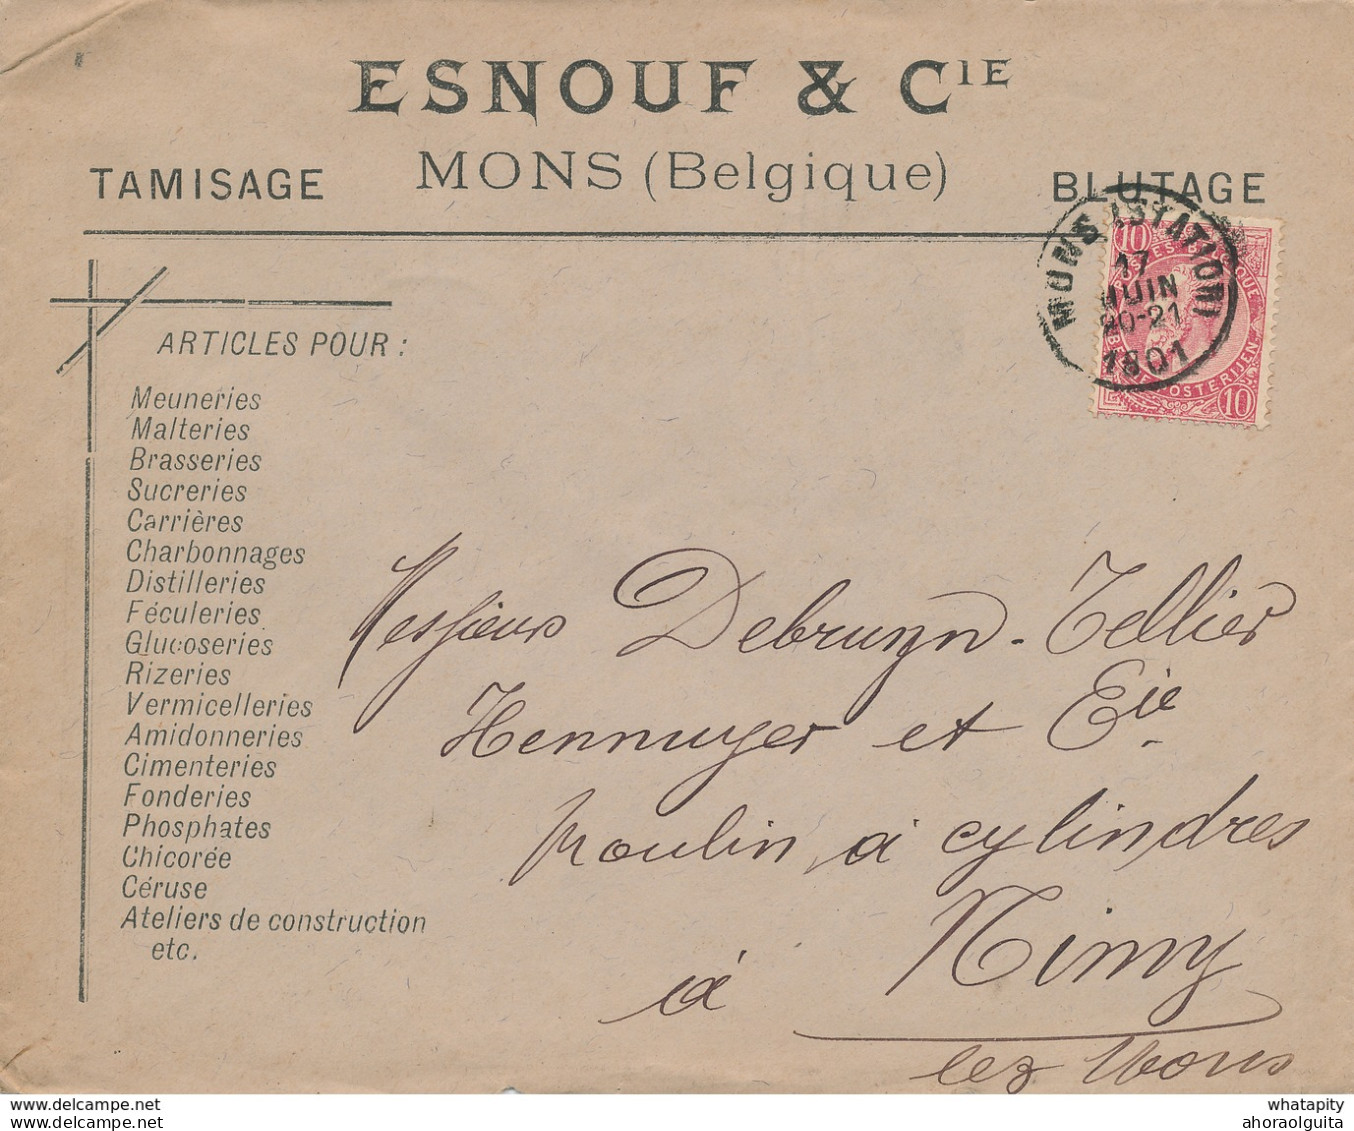 ESNOUF & CIE
MONS (Belgique)
TAMISAGE
BLUTAGE
MONS (STATION)
17
JUIN
20-21
1801
10
POSTES BELGIQUE
BELGIE POSTERIJEN
10
ARTICLES POUR :
Meuneries
Malteries
Brasseries
Sucreries
Carrières
Charbonnages
Distilleries
Féculeries
Glucoseries
Rizeries
Vermicelleries
Amidonneries
Cimenteries
Fonderies
Phosphates
Chicorée
Céruse
Ateliers de construction
etc.
Messieurs Debruyn-Tellier
Hennuyer et Cie
Moulin à cylindres
à Nimy
lez Mons
delcampe.net
whatapity
ahoraolguita